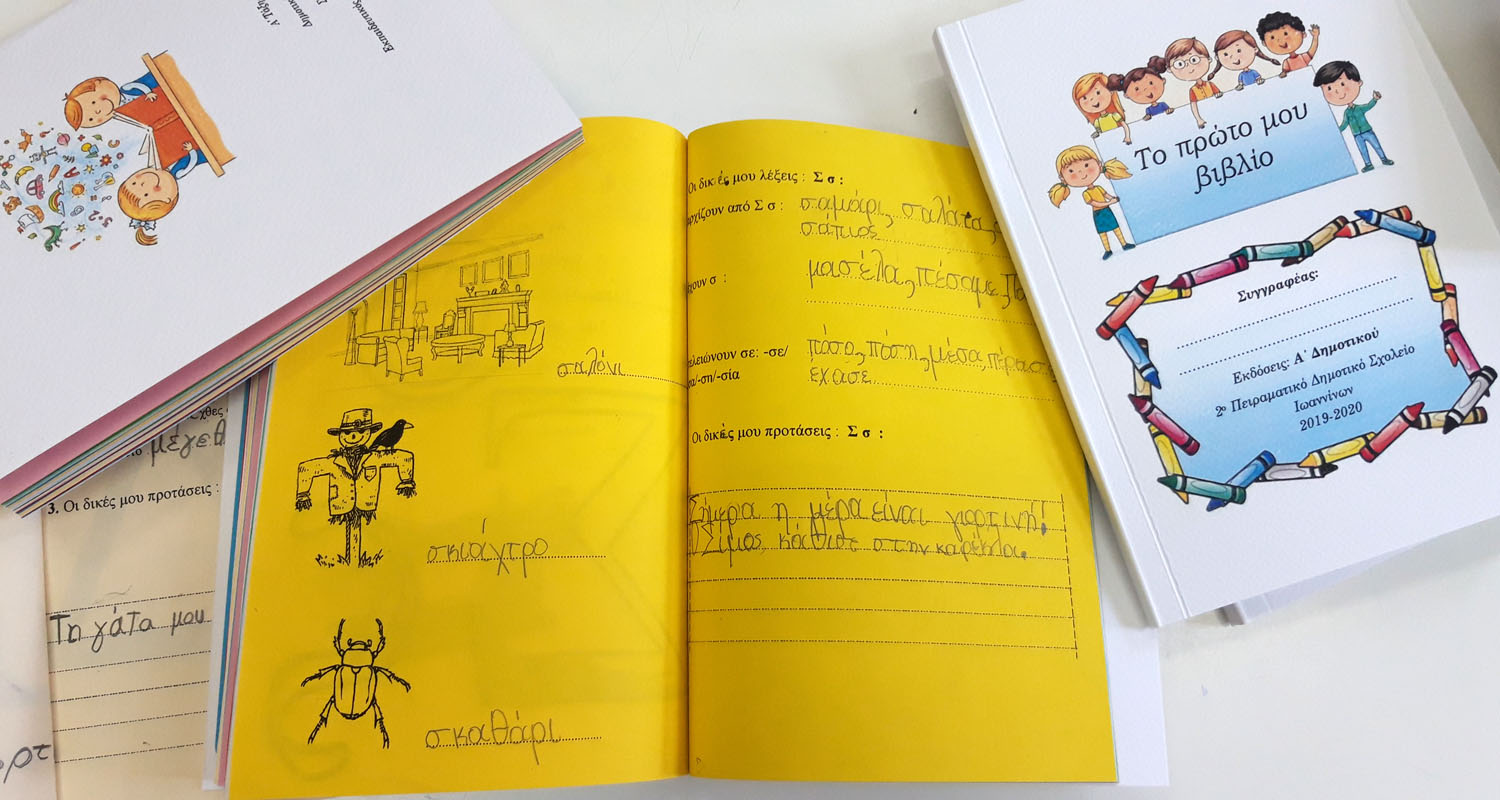 Εκπαιδευτικός
Α' Τάξη
χθες
μέγεθ
3. Οι δικές μου προτάσεις :
Τη γάτα μου
σαλόνι
σκιάχτρο
σκαθάρι
Οι δικές μου λέξεις : Σ σ :
ρχίζουν από Σ σ : σαμάρι, σαλάτα,
σάπιος
χουν σ : μασέλα, πέσαμε,
λειώνουν σε: -σε/ πόσο, πόση, μέσα, πέρασε
σα/-ση/-σία έχασε
Οι δικές μου προτάσεις : Σ σ :
Σήμερα η μέρα είναι γιορτινή!
Ο Σίμος κάθισε στην καρέκλα.
Το πρώτο μου
βιβλίο
Συγγραφέας:
Εκδόσεις: Α΄ Δημοτικού
2ο Πειραματικό Δημοτικό Σχολείο
Ιωαννίνων
2019-2020